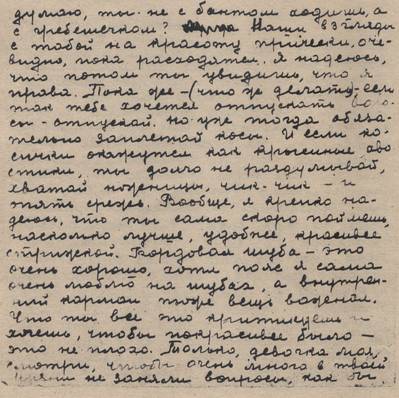 думаю, ты не с бантом ходишь, а
с гребешком? Наши взгляды
с тобой на красоту прически, оче-
видно, пока расходятся. Я надеюсь,
что потом ты увидишь, что я
права. Пока же – (что ж делать) – если
так тебе хочется отпускать воло-
сы – отпускай. но уже тогда обяза-
тельно заплетай косы. И если ко-
сички окажутся как крысиные хво
стики, ты долго не раздумывай,
хватай ножницы, чик-чик – и
опять срежь. Вообще, я крепко на-
деюсь, что ты сама скоро поймешь,
насколько лучше, удобнее, красивее
стрижкой. Бордовая шуба – это
очень хорошо, хотя пояс я сама
очень люблю на шубах, а внутрен-
ний карман тоже вещь важная.
Что ты все это критикуешь и
хочешь, чтобы покрасивее было –
это не плохо. Только, девочка моя,
смотри, чтобы очень много в твоей
жизни не заняли вопросы, как бы